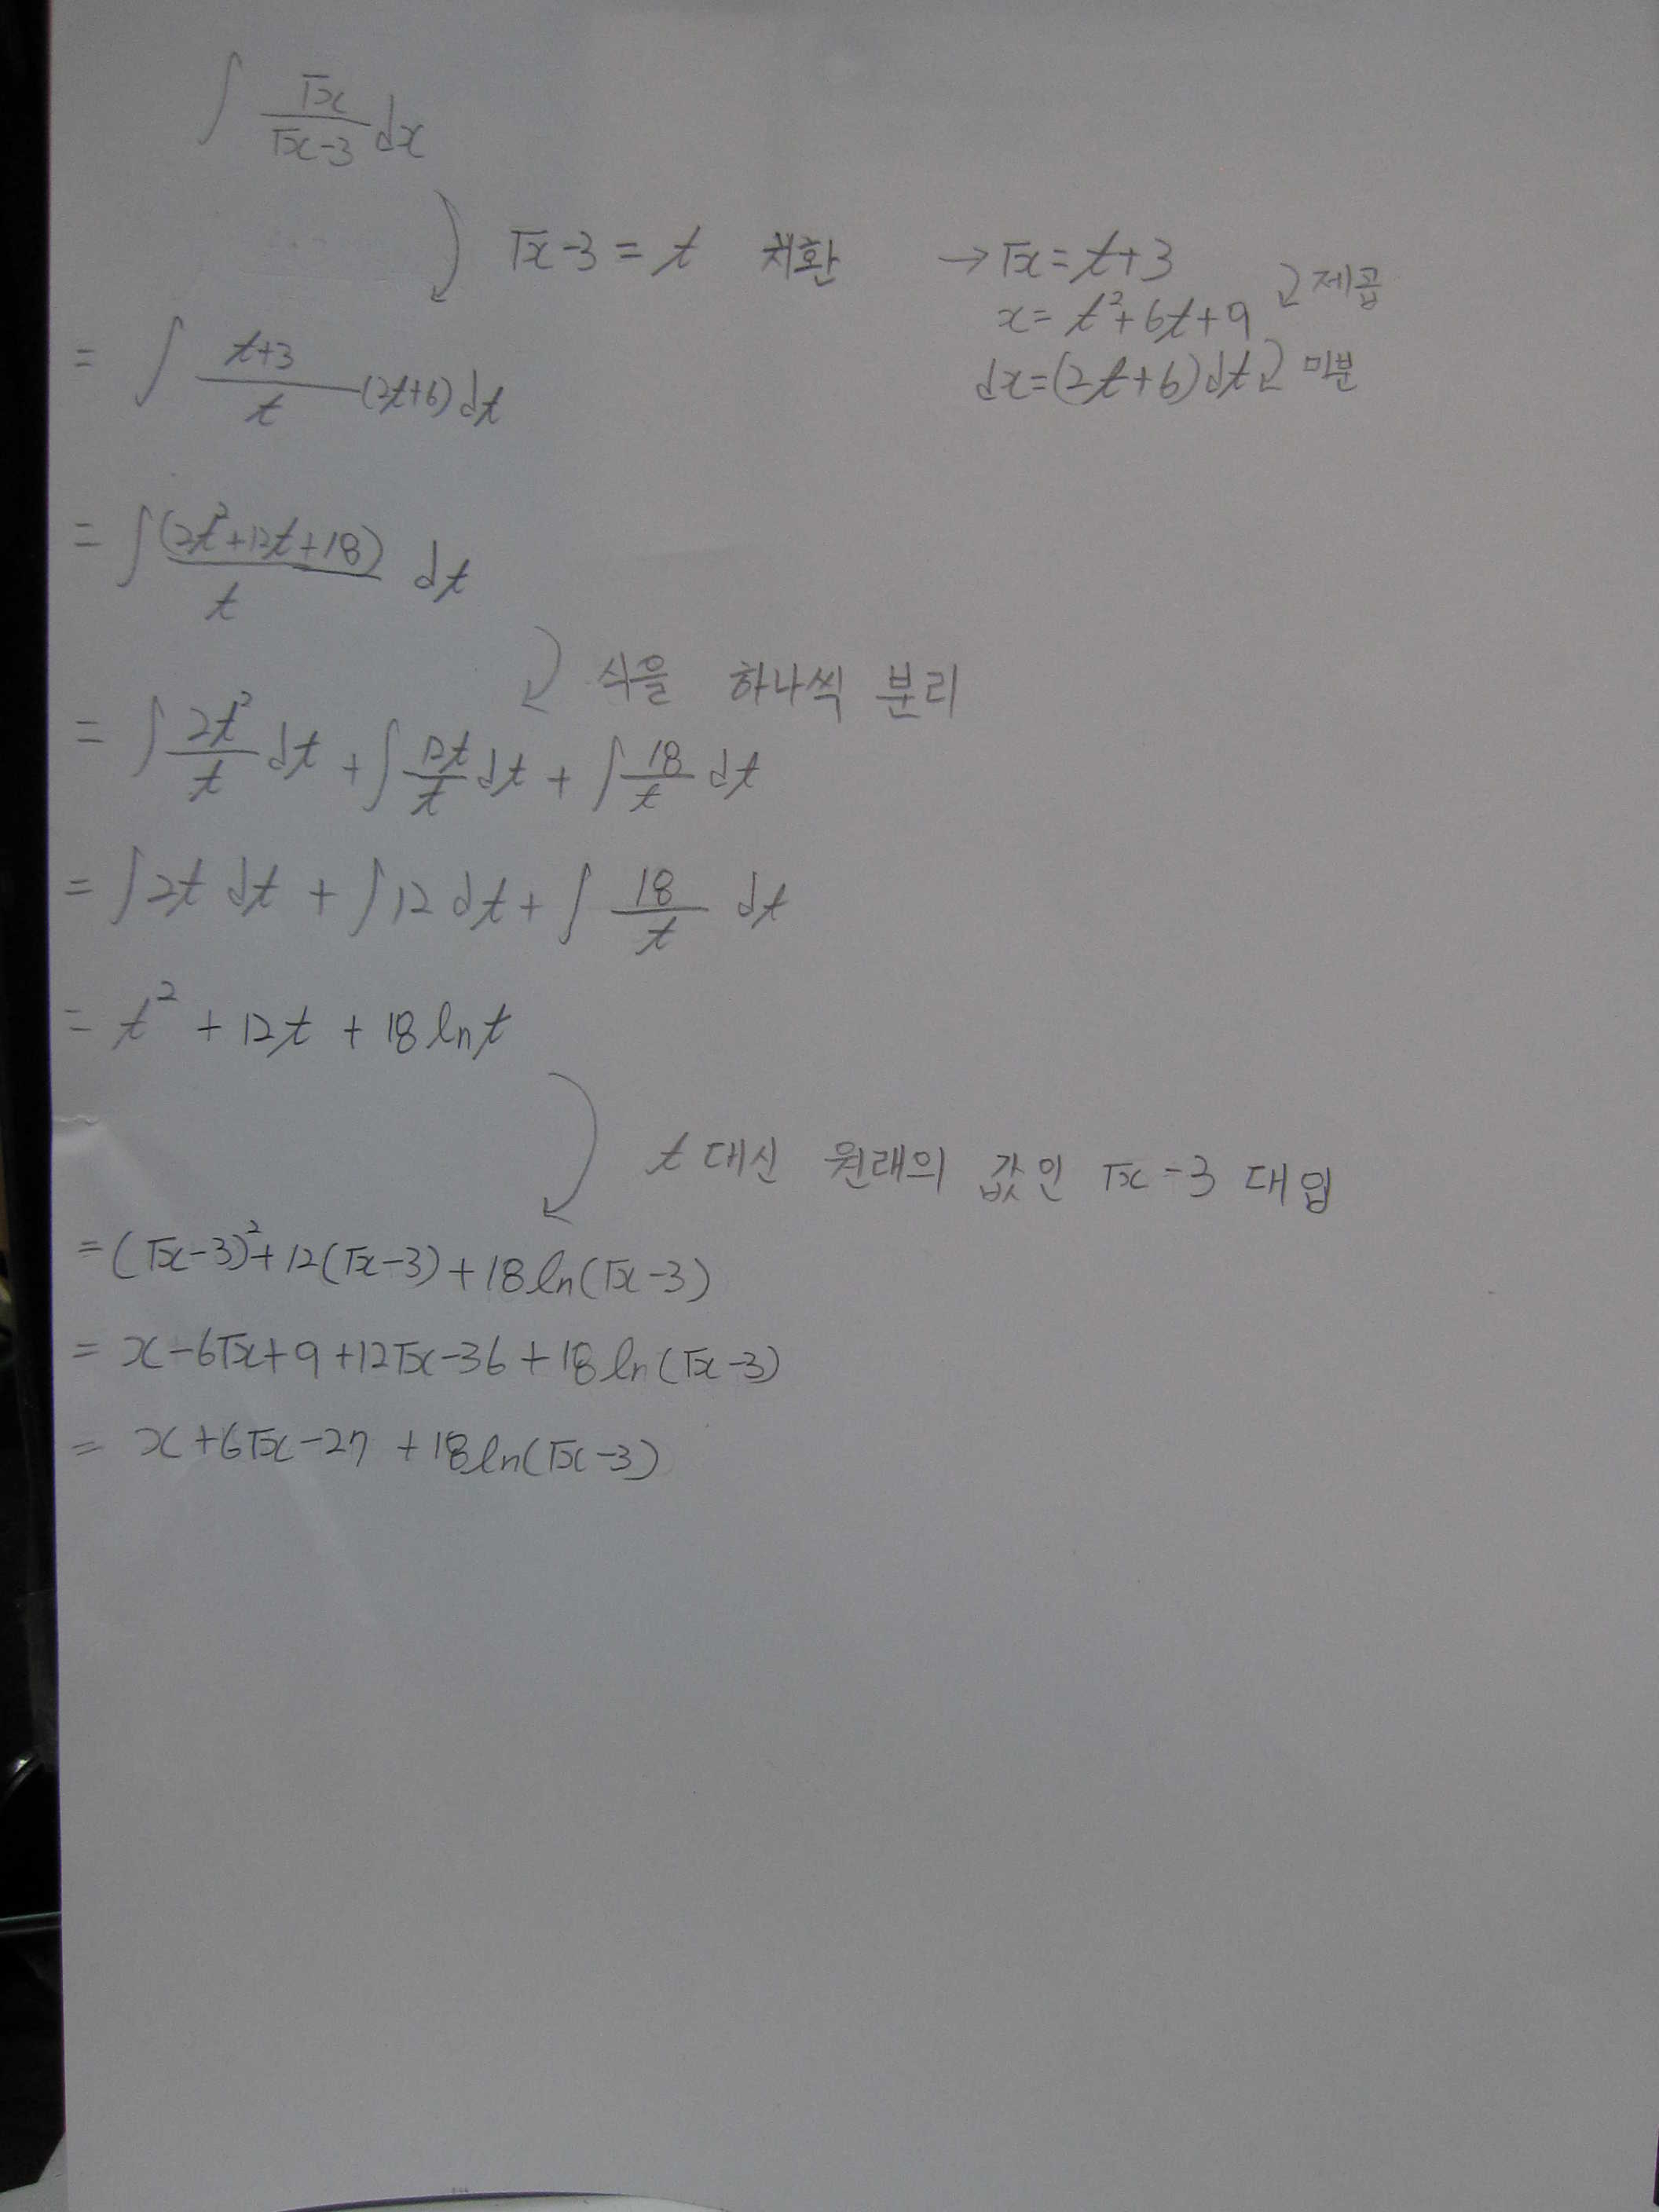 ∫ √x / (√x-3) dx
√x-3 = t 치환 → √x = t+3
x = t²+6t+9 제곱
dx = (2t+6)dt 미분
= ∫ (t+3)/t (2t+6) dt
= ∫ (2t²+12t+18)/t dt
식을 하나씩 분리
= ∫ 2t²/t dt + ∫ 12t/t dt + ∫ 18/t dt
= ∫ 2t dt + ∫ 12 dt + ∫ 18/t dt
= t² + 12t + 18 ln t
t 대신 원래의 값인 √x-3 대입
= (√x-3)² + 12(√x-3) + 18 ln(√x-3)
= x-6√x+9+12√x-36+18 ln(√x-3)
= x+6√x-27+18 ln(√x-3)